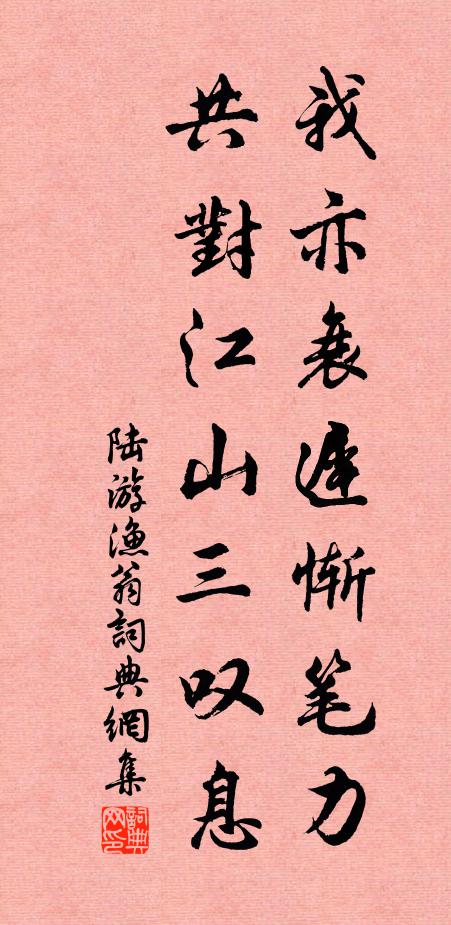 我亦衰遲慚笔力
共對江山三叹息
陆游漁翁詞典網集
詞典网印